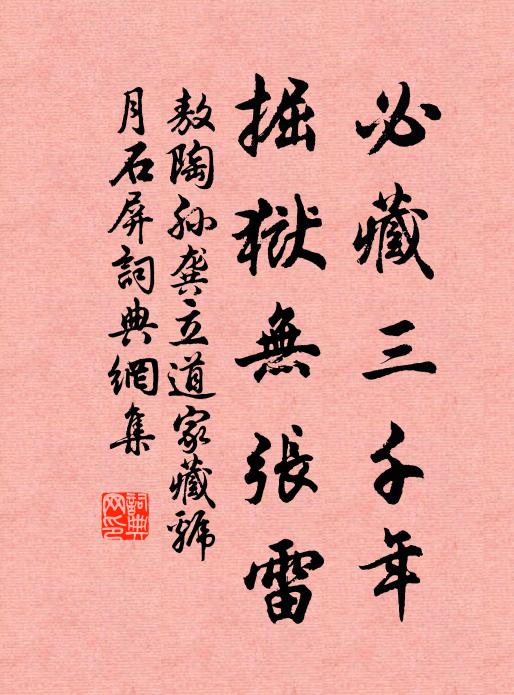 必藏三千年
掘獄無張雷
敖陶孙龚立道家藏號
月石屏詞典網集
詞典网印